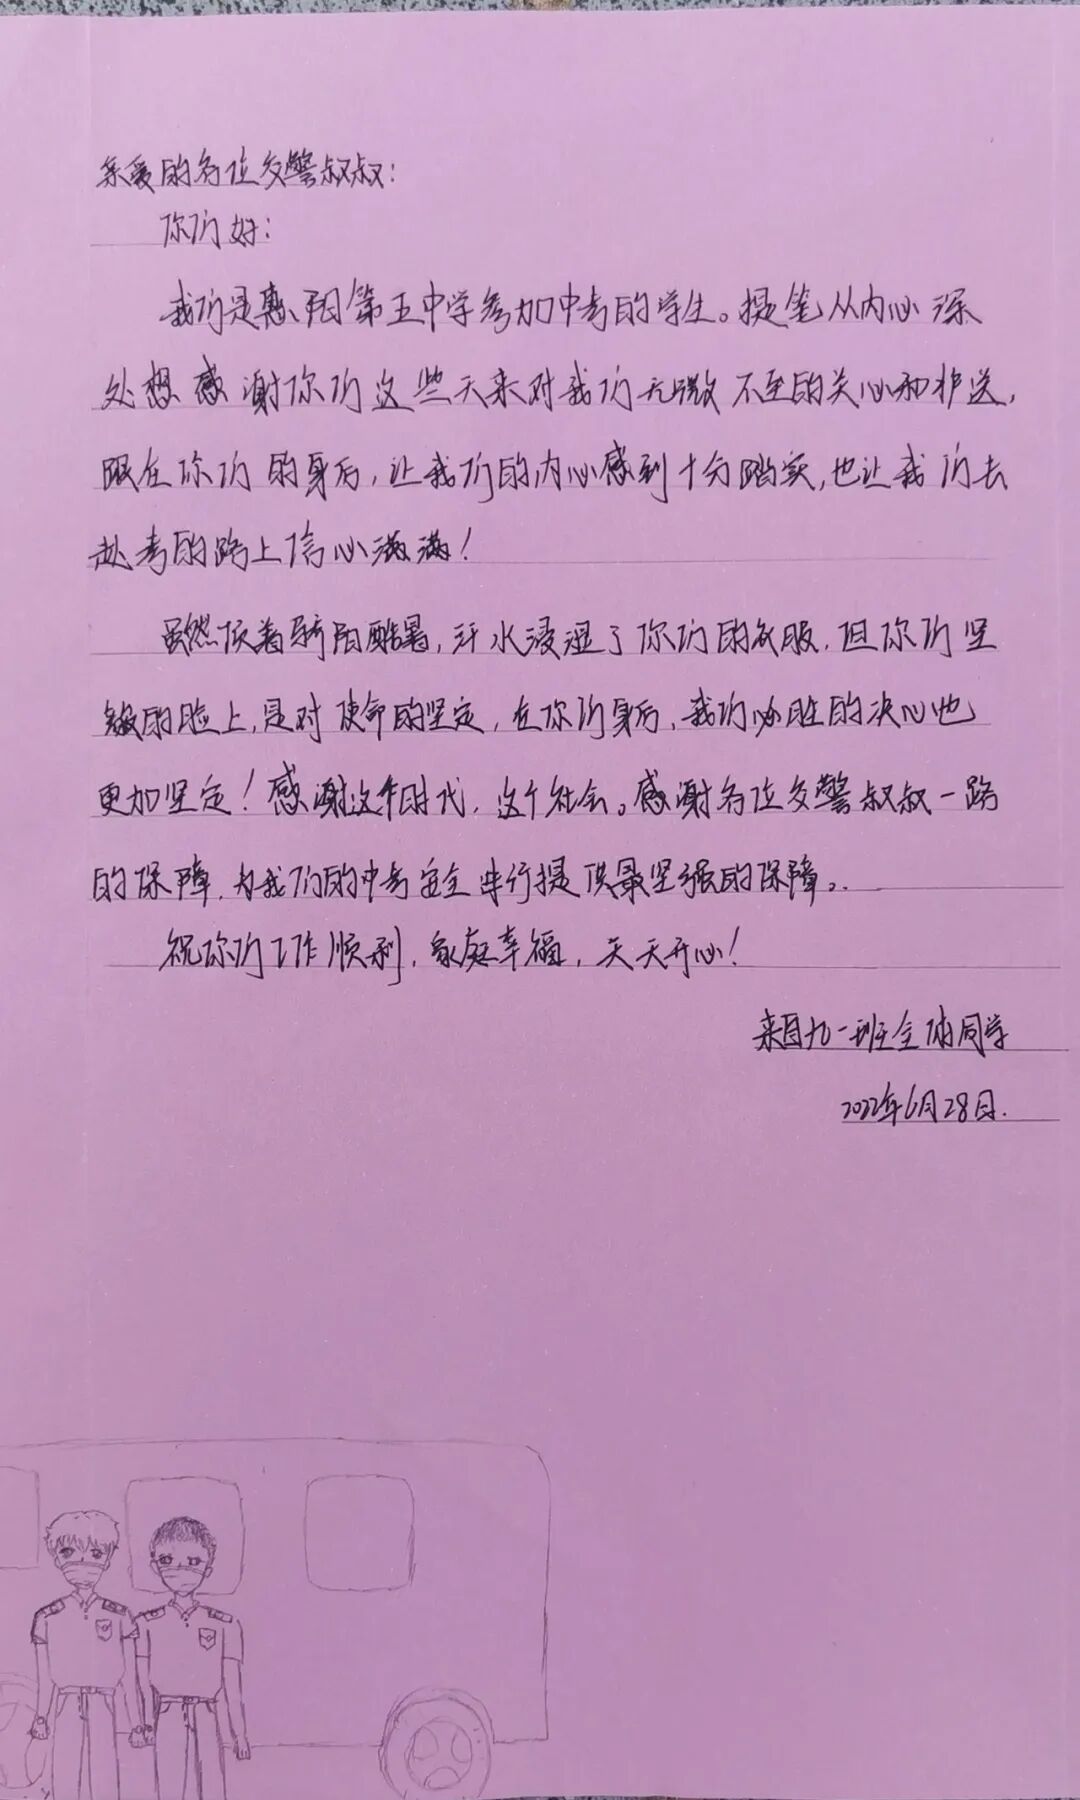 亲爱的各位交警叔叔：
你们好：
我们是惠阳第五中学参加中考的学生。提笔从内心深
处想感谢你们这些天来对我们无微不至的关心和护送，
跟在你们的身后，让我们的内心感到十分踏实，也让我们去
赴考的路上信心满满！
虽然顶着骄阳酷暑，汗水浸湿了你们的衣服，但你们坚
毅的脸上，是对使命的坚定，在你们身后，我们必胜的决心也
更加坚定！感谢这个时代，这个社会。感谢各位交警叔叔一路
的保障，为我们的中考安全出行提供最坚强的保障。
祝你们工作顺利，家庭幸福，天天开心！
来自九一班全体同学
2022年6月28日.